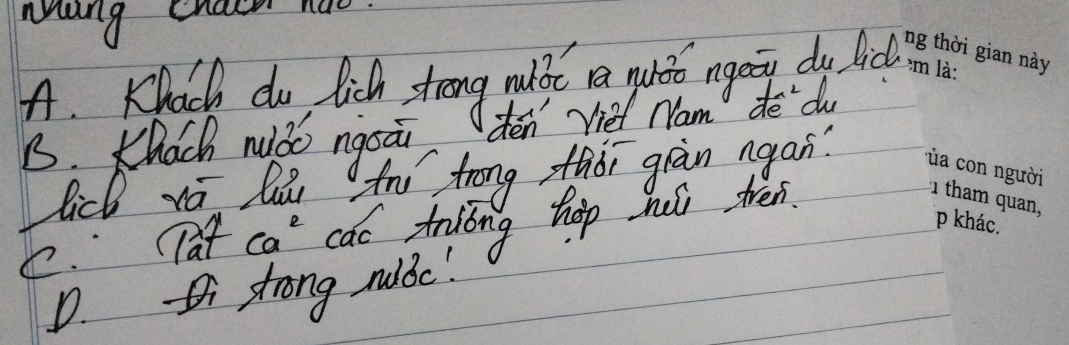 những khách nào.
A. Khách du lịch trong nước ra nước ngoài du lịch
B. Khách nước ngoài đến Việt Nam để du
lịch và lưu trú trong thời gian ngắn.
C. Tất cả các trường hợp nêu trên.
D. Đi trong nước.
ng thời gian này
em là:
ủa con người
tham quan,
p khác.